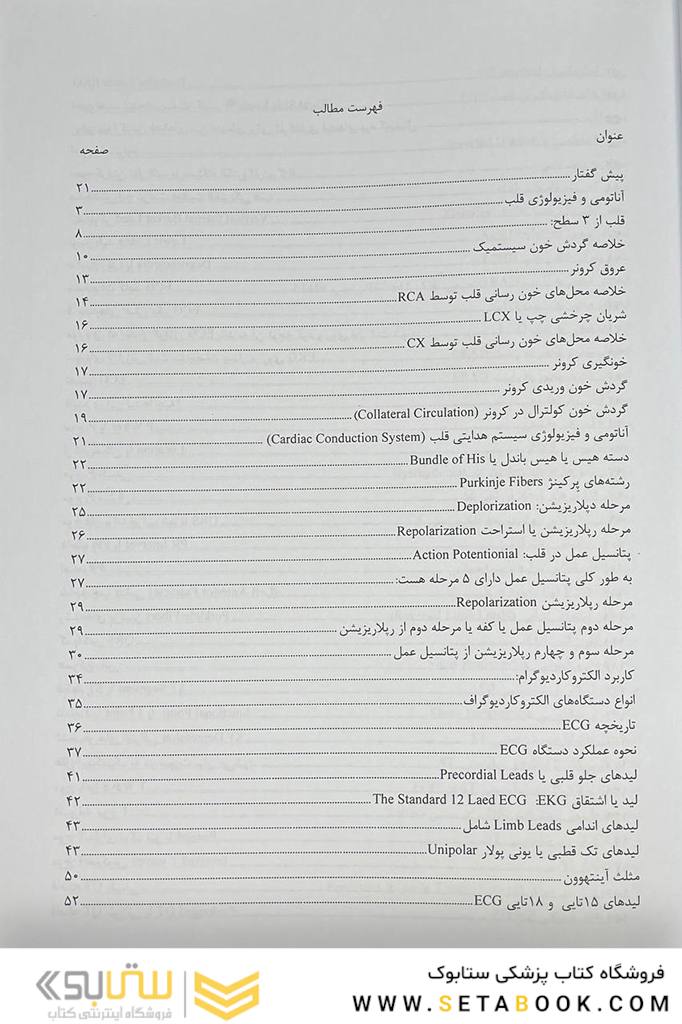 فهرست مطالب
عنوان
صفحه
پیش گفتار ۲۱
آناتومی و فیزیولوژی قلب ۳
قلب از ۳ سطح: ۸
خلاصه گردش خون سیستمیک ۱۰
عروق کرونر ۱۳
خلاصه محل‌های خون رسانی قلب توسط RCA ۱۴
شریان چرخشی چپ یا LCX ۱۶
خلاصه محل‌های خون رسانی قلب توسط CX ۱۶
خونگیری کرونر ۱۷
گردش خون وریدی کرونر ۱۷
گردش خون کولترال در کرونر (Collateral Circulation) ۱۹
آناتومی و فیزیولوژی سیستم هدایتی قلب (Cardiac Conduction System) ۲۱
دسته هیس یا هیس باندل یا Bundle of His ۲۲
رشته‌های پرکینژ Purkinje Fibers ۲۲
مرحله دپلاریزیشن: Deplorization ۲۵
مرحله رپلاریزیشن یا استراحت Repolarization ۲۶
پتانسیل عمل در قلب: Action Potentionial ۲۷
به طور کلی پتانسیل عمل دارای ۵ مرحله هست: ۲۷
مرحله رپلاریزیشن Repolarization ۲۹
مرحله دوم پتانسیل عمل یا کفه یا مرحله دوم از رپلاریزیشن ۲۹
مرحله سوم و چهارم رپلاریزیشن از پتانسیل عمل ۳۰
کاربرد الکتروکاردیوگرام: ۳۴
انواع دستگاه‌های الکتروکاردیوگراف ۳۵
تاریخچه ECG ۳۶
نحوه عملکرد دستگاه ECG ۳۷
لیدهای جلو قلبی یا Precordial Leads ۴۱
لید یا اشتقاق EKG: The Standard 12 Laed ECG ۴۲
لیدهای اندامی Limb Leads شامل ۴۳
لیدهای تک قطبی یا یونی پولار Unipolar ۴۳
مثلث آینتهوون ۵۰
لیدهای ۱۵تایی و ۱۸تایی ECG ۵۲
فروشگاه کتاب پزشکی ستابوک
WWW.SETABOOK.COM
ستابوک
فروشگاه اینترنتی کتاب